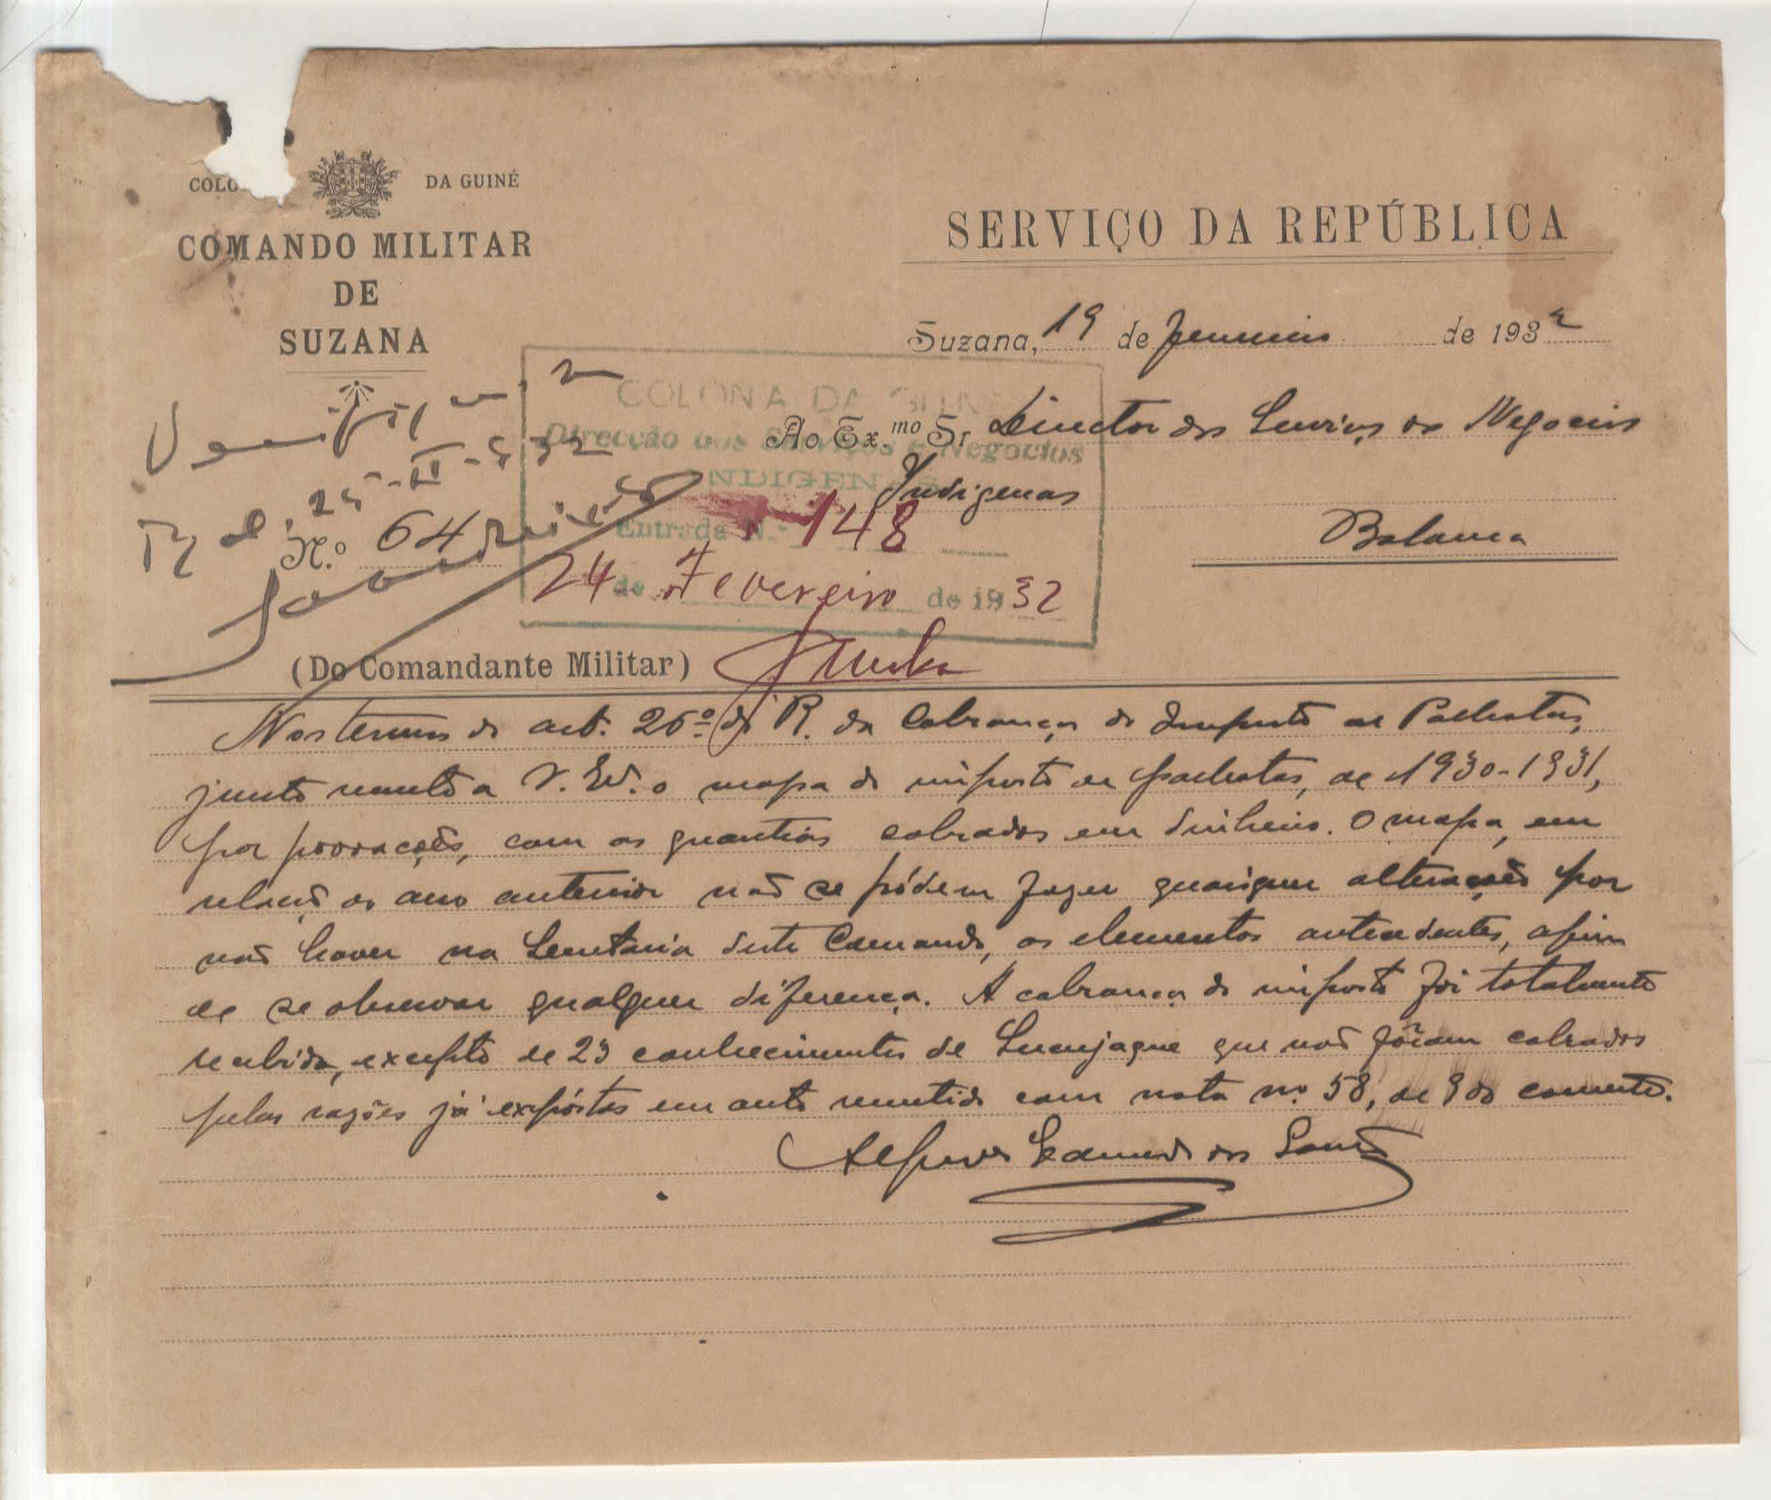 COLO DA GUINÉ
COMANDO MILITAR
DE
SUZANA
SERVIÇO DA REPÚBLICA
Suzana, 19 de Fevereiro de 1932
COLONIA DA GUINÉ
Direcção dos Serviços e Negocios
INDIGENAS
Entrada N.º 148
24 de Fevereiro de 1932
Ao Ex.mo Sr Director dos Serviços os Negocios
Indigenas
Bolama
N.º 64
(Do Comandante Militar)
Nos termos do art. 26º do R. da Cobrança do Imposto de Palhotas,
junto remeto a V. Exª. o mapa do imposto de palhotas, de 1930-1931,
por povoações, com as quantias cobradas em dinheiro. O mapa, em
relação ao ano anterior não se pódem fazer quaisquer alterações por
não haver na Secretaria deste Comando, os elementos antecedentes, afim
de se observar qualquer diferença. A cobrança do imposto foi totalmente
recebida, excepto de 23 conhecimentos de que não fôram cobrados
pelas razões já expóstas em auto remetido com nota nº 58, de 9 do corrente.